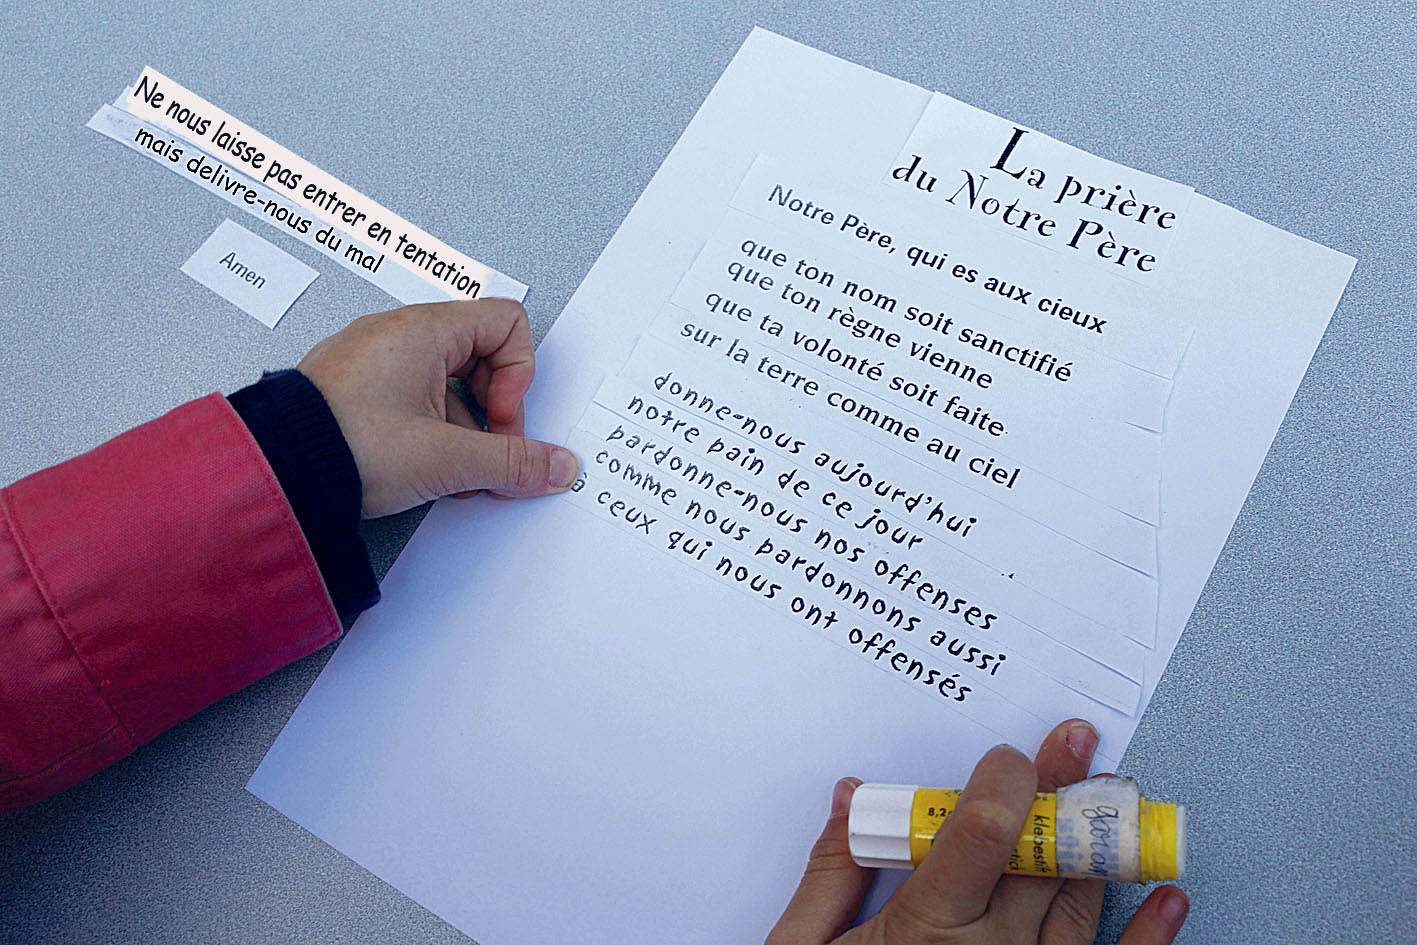 La prière
du Notre Père
Notre Père, qui es aux cieux
que ton nom soit sanctifié
que ton règne vienne
que ta volonté soit faite
sur la terre comme au ciel
donne-nous aujourd'hui
notre pain de ce jour
pardonne-nous nos offenses
comme nous pardonnons aussi
à ceux qui nous ont offensés
Ne nous laisse pas entrer en tentation
mais delivre-nous du mal
Amen
8,2
klebestift
stick